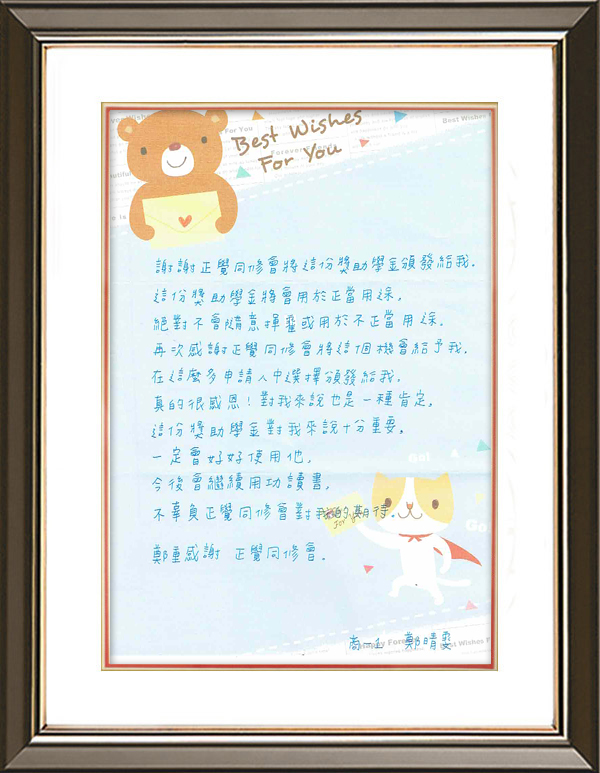 Best Wishes
For You
For You
Best Wishes
Forever Friends
謝謝正覺同修會將這份獎助學金頒發給我.
這份獎助學金將會用於正當用途,
絕對不會隨意揮霍或用於不正當用途.
再次感謝正覺同修會將這個機會給予我.
在這麼多申請人中選擇頒發給我。
真的很感恩!對我來說也是一種肯定,
這份獎助學金對我來說十分重要,
一定會好好使用他,
Go!
今後會繼續用功讀書,
不辜負正覺同修會對我的期待.
For you
Go!
鄭重感謝 正覺同修會.
Happy Forever
Best Wishes F
鄭晴雯